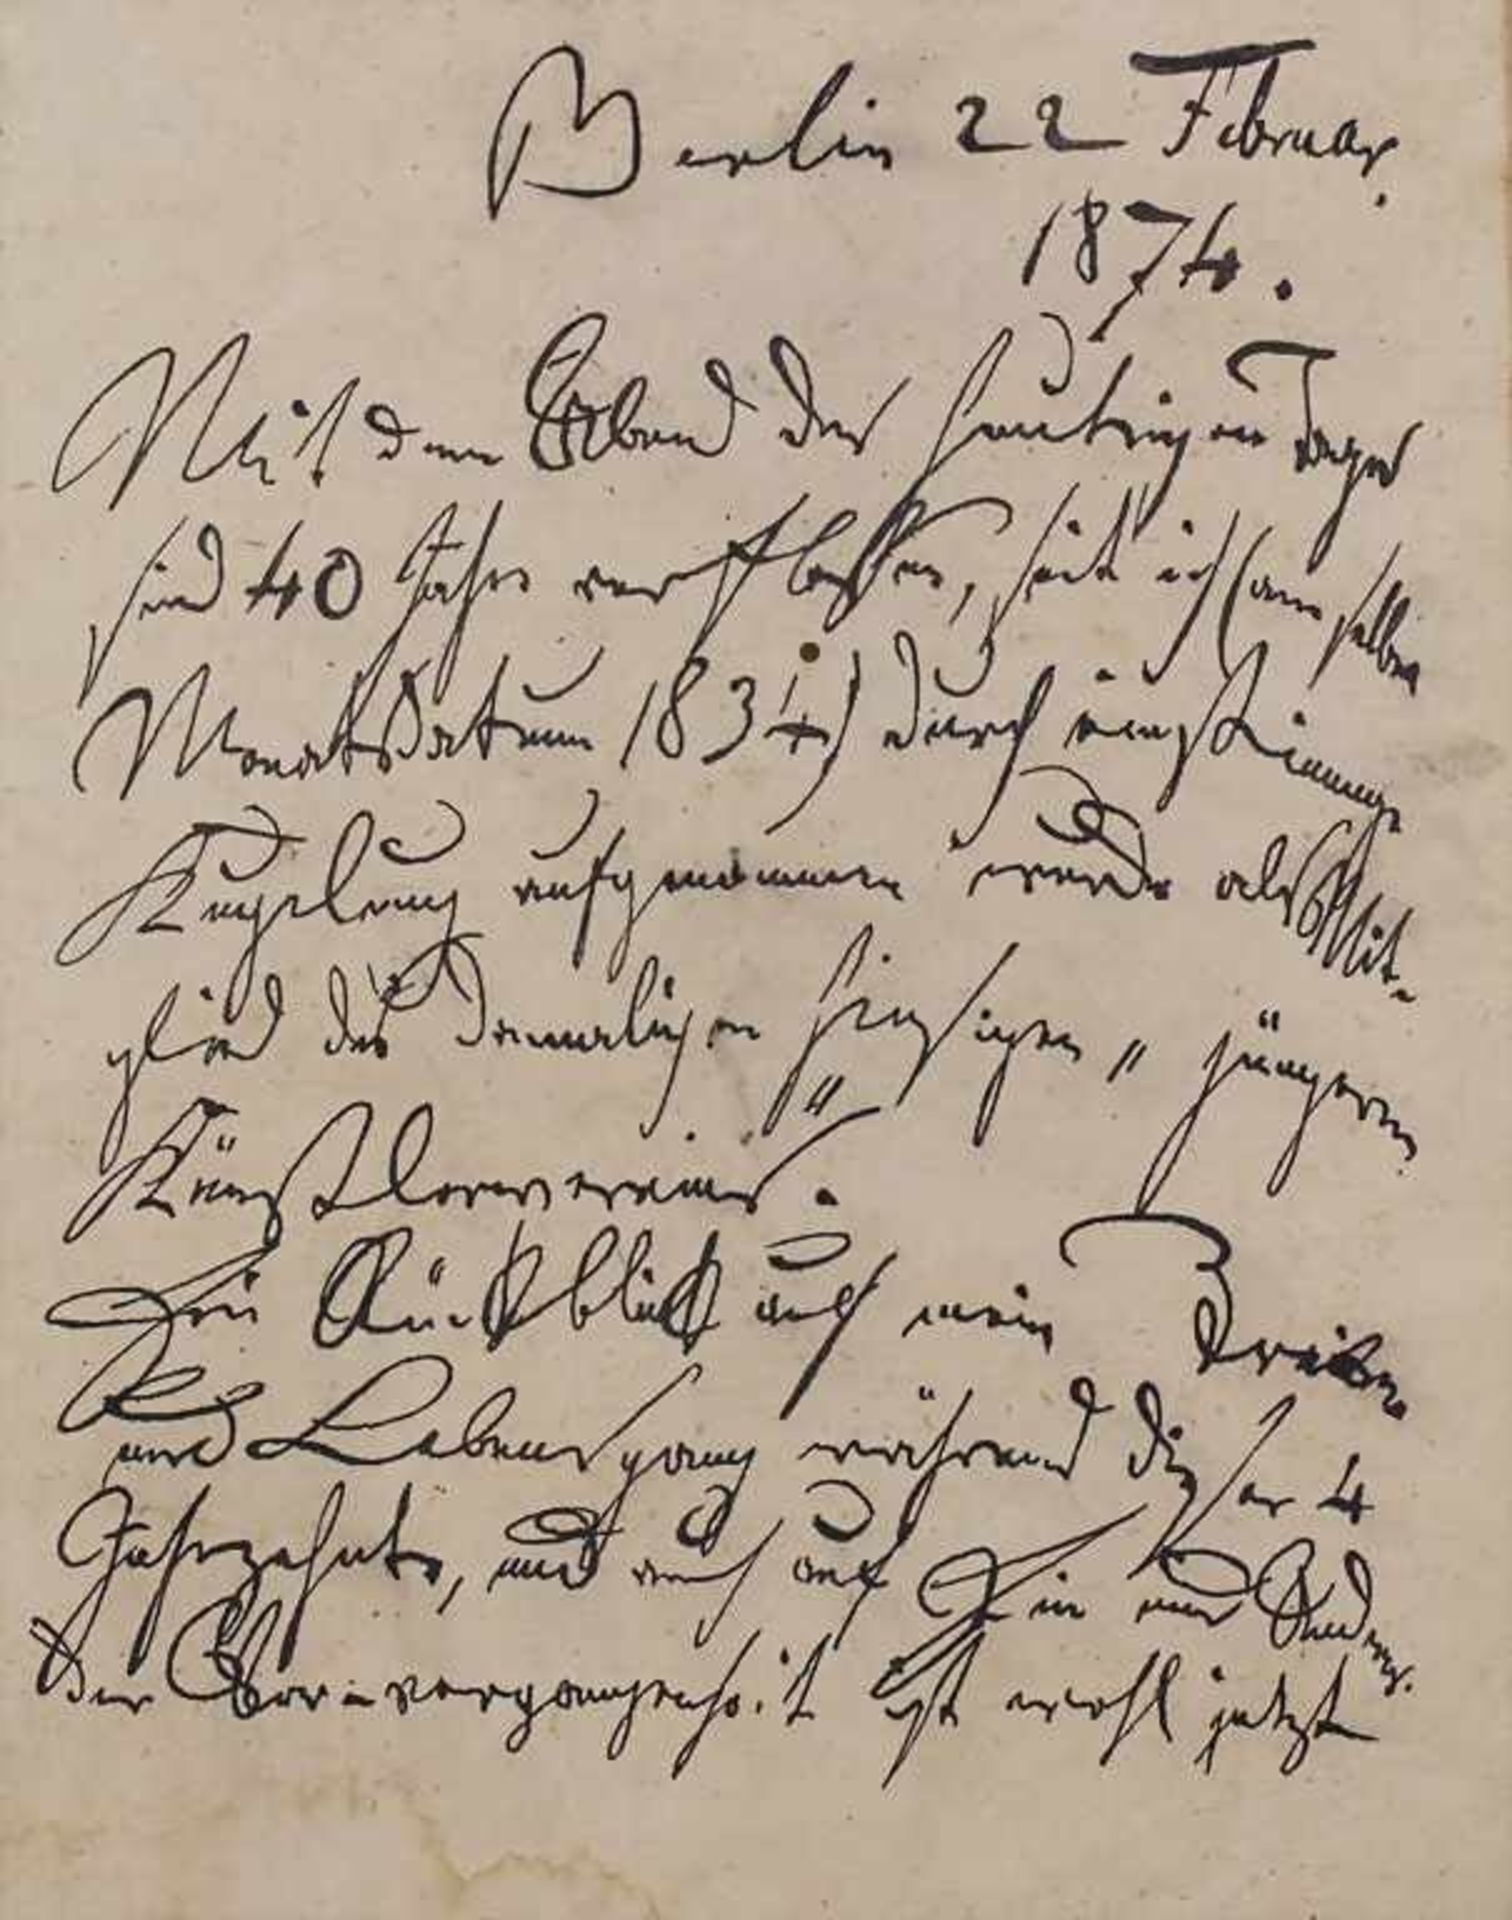 Berlin 22 Februar.
1874.
Mit dem Abend des heutigen Tages
sind 40 Jahre verflossen, seit ich (am selben
Monatsdatum 1834) durch einstimmige
Kugelung aufgenommen wurde als Mit-
glied des damaligen hiesigen „jüngern
Künstlervereins".
Ein Rückblick auf mein Treiben
und Lebensgang während dieser 4
Jahrzehnte, und auch auf Ein und Andres
der Vorvergangenheit ist wohl jetzt